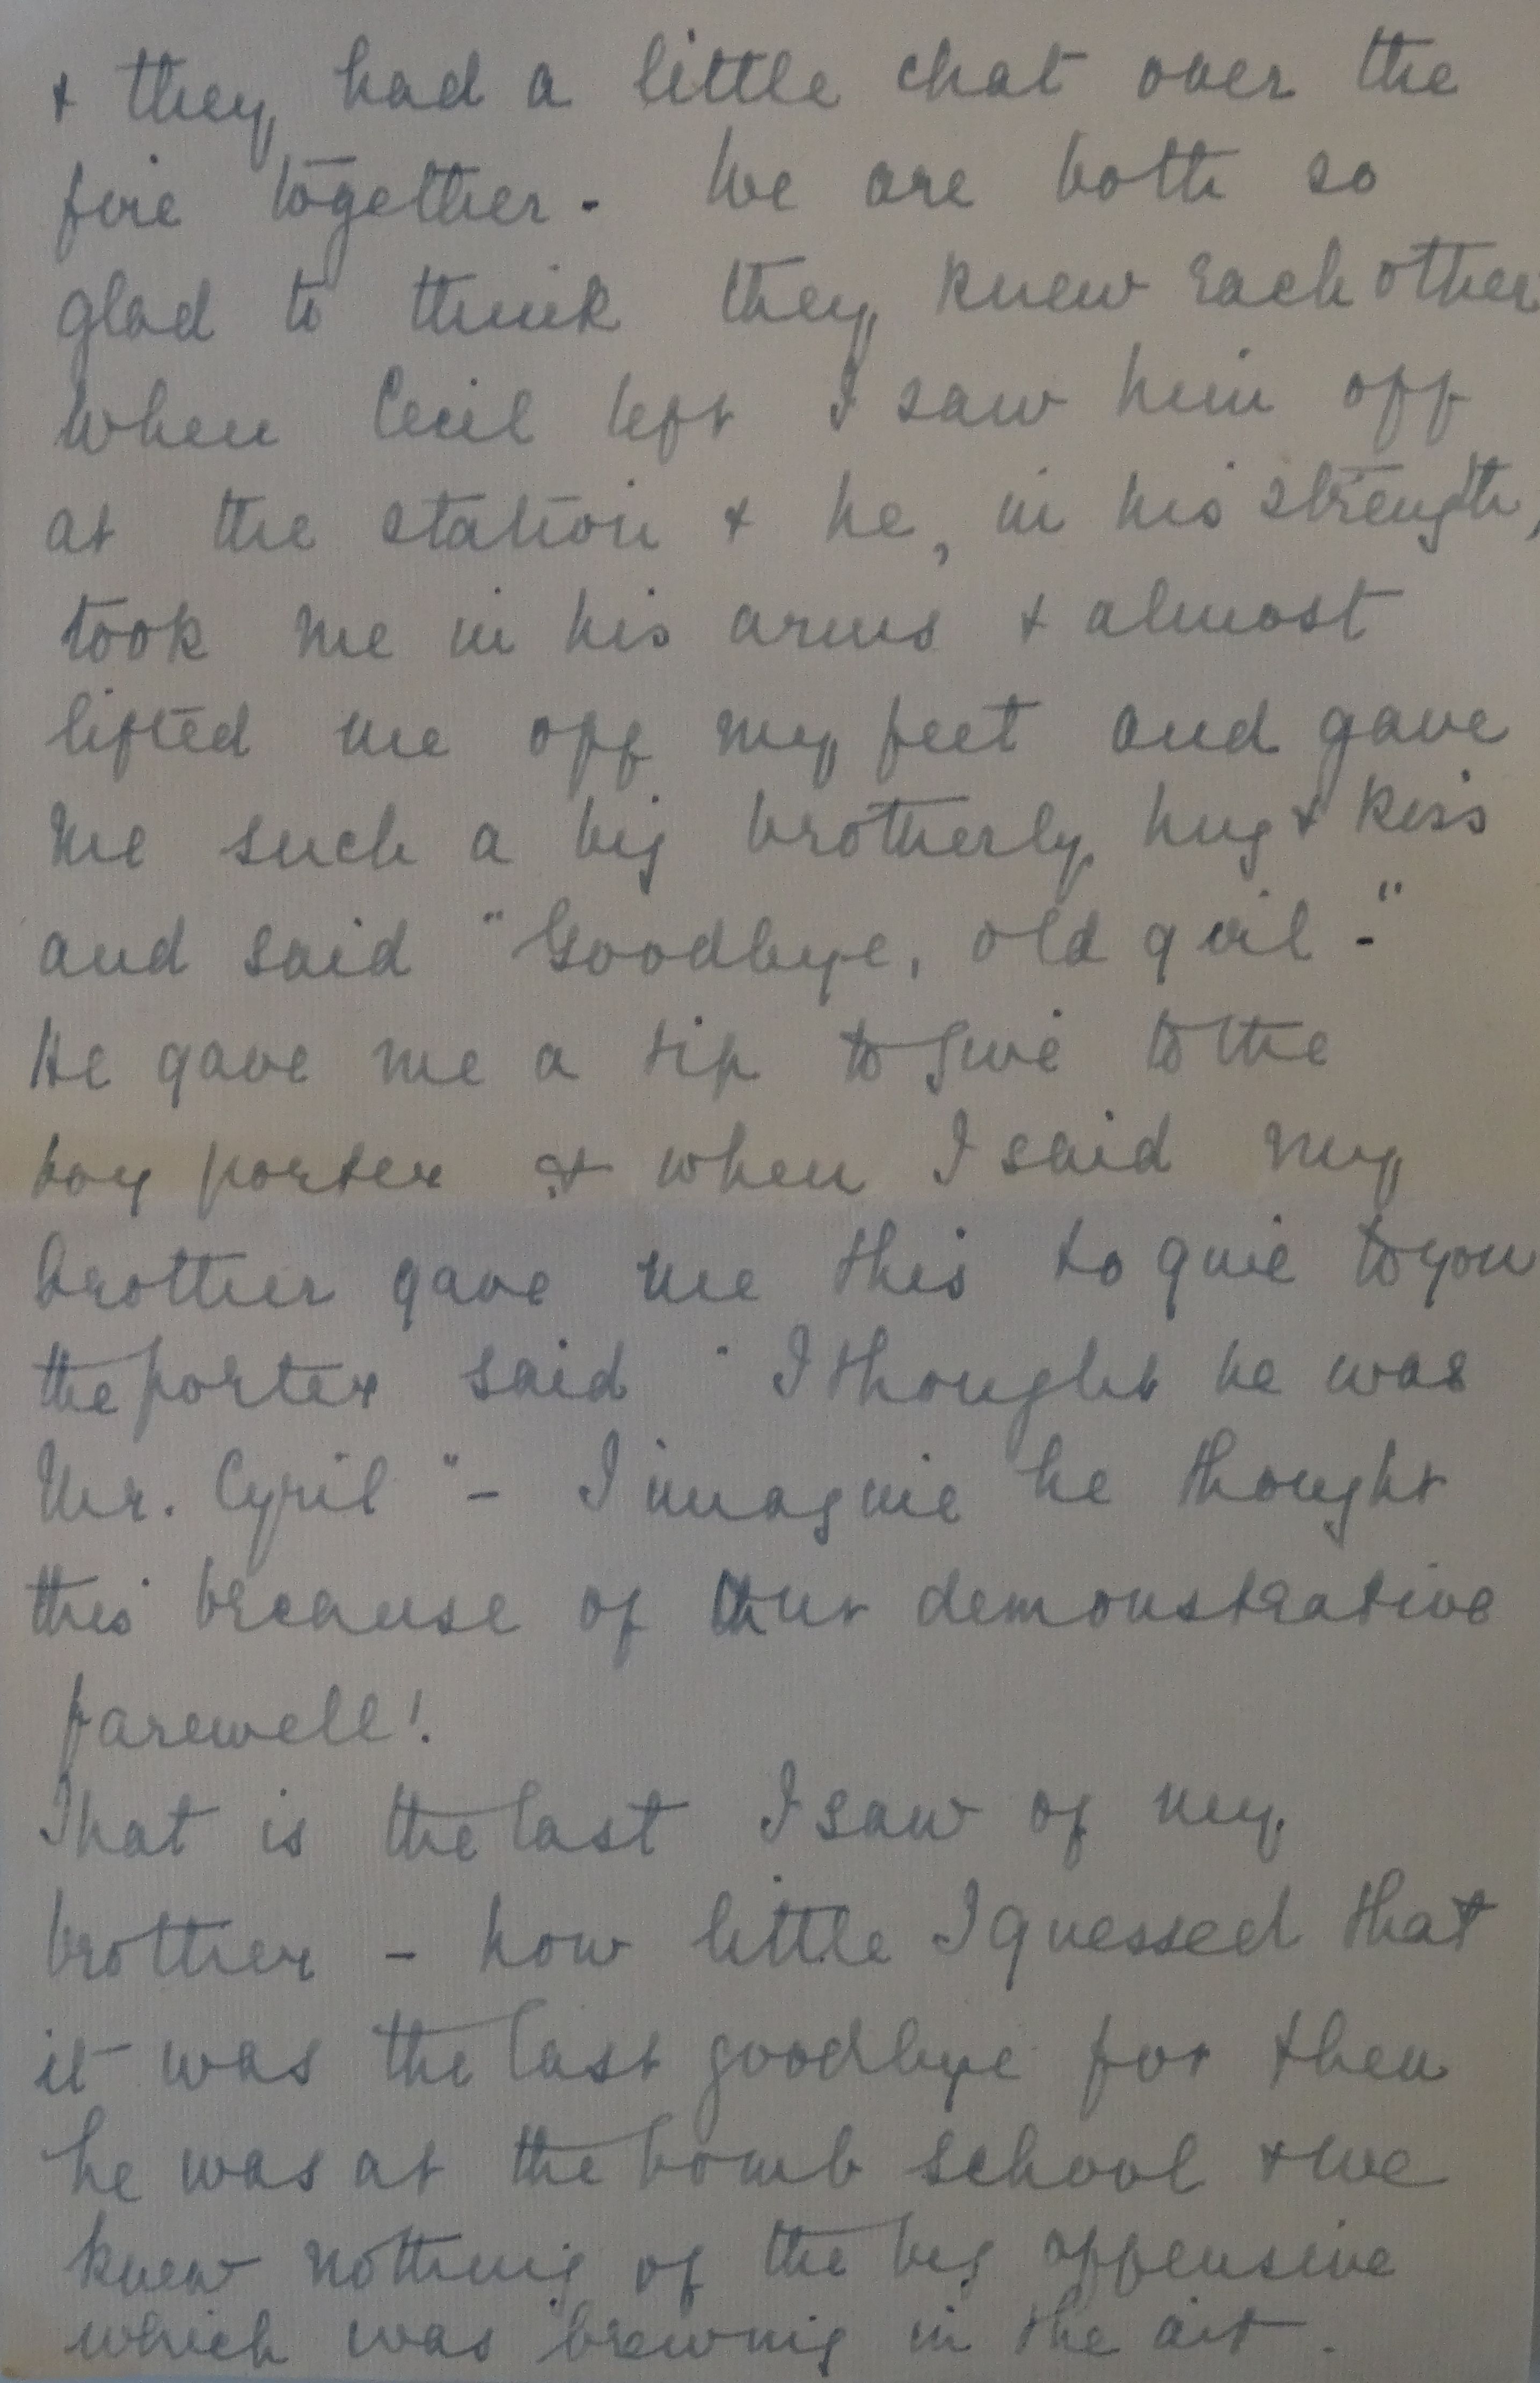 + they had a little chat over the
fire together. We are both so
glad to think they knew each other
when Cecil left I saw him off
at the station + he, in his strength,
took me in his arms + almost
lifted me off my feet and gave
me such a big brotherly hug + kiss
and said "Goodbye, old girl -"
He gave me a tip to give to the
boy porter & when I said my
brother gave me this to give to you
the porter said " I thought he was
Mr. Cyril " - I imagine he thought
this because of our demonstrative
farewell!
That is the last I saw of my
brother - how little I guessed that
it was the last goodbye for then
he was at the bomb school + we
knew nothing of the big offensive
which was brewing in the air.